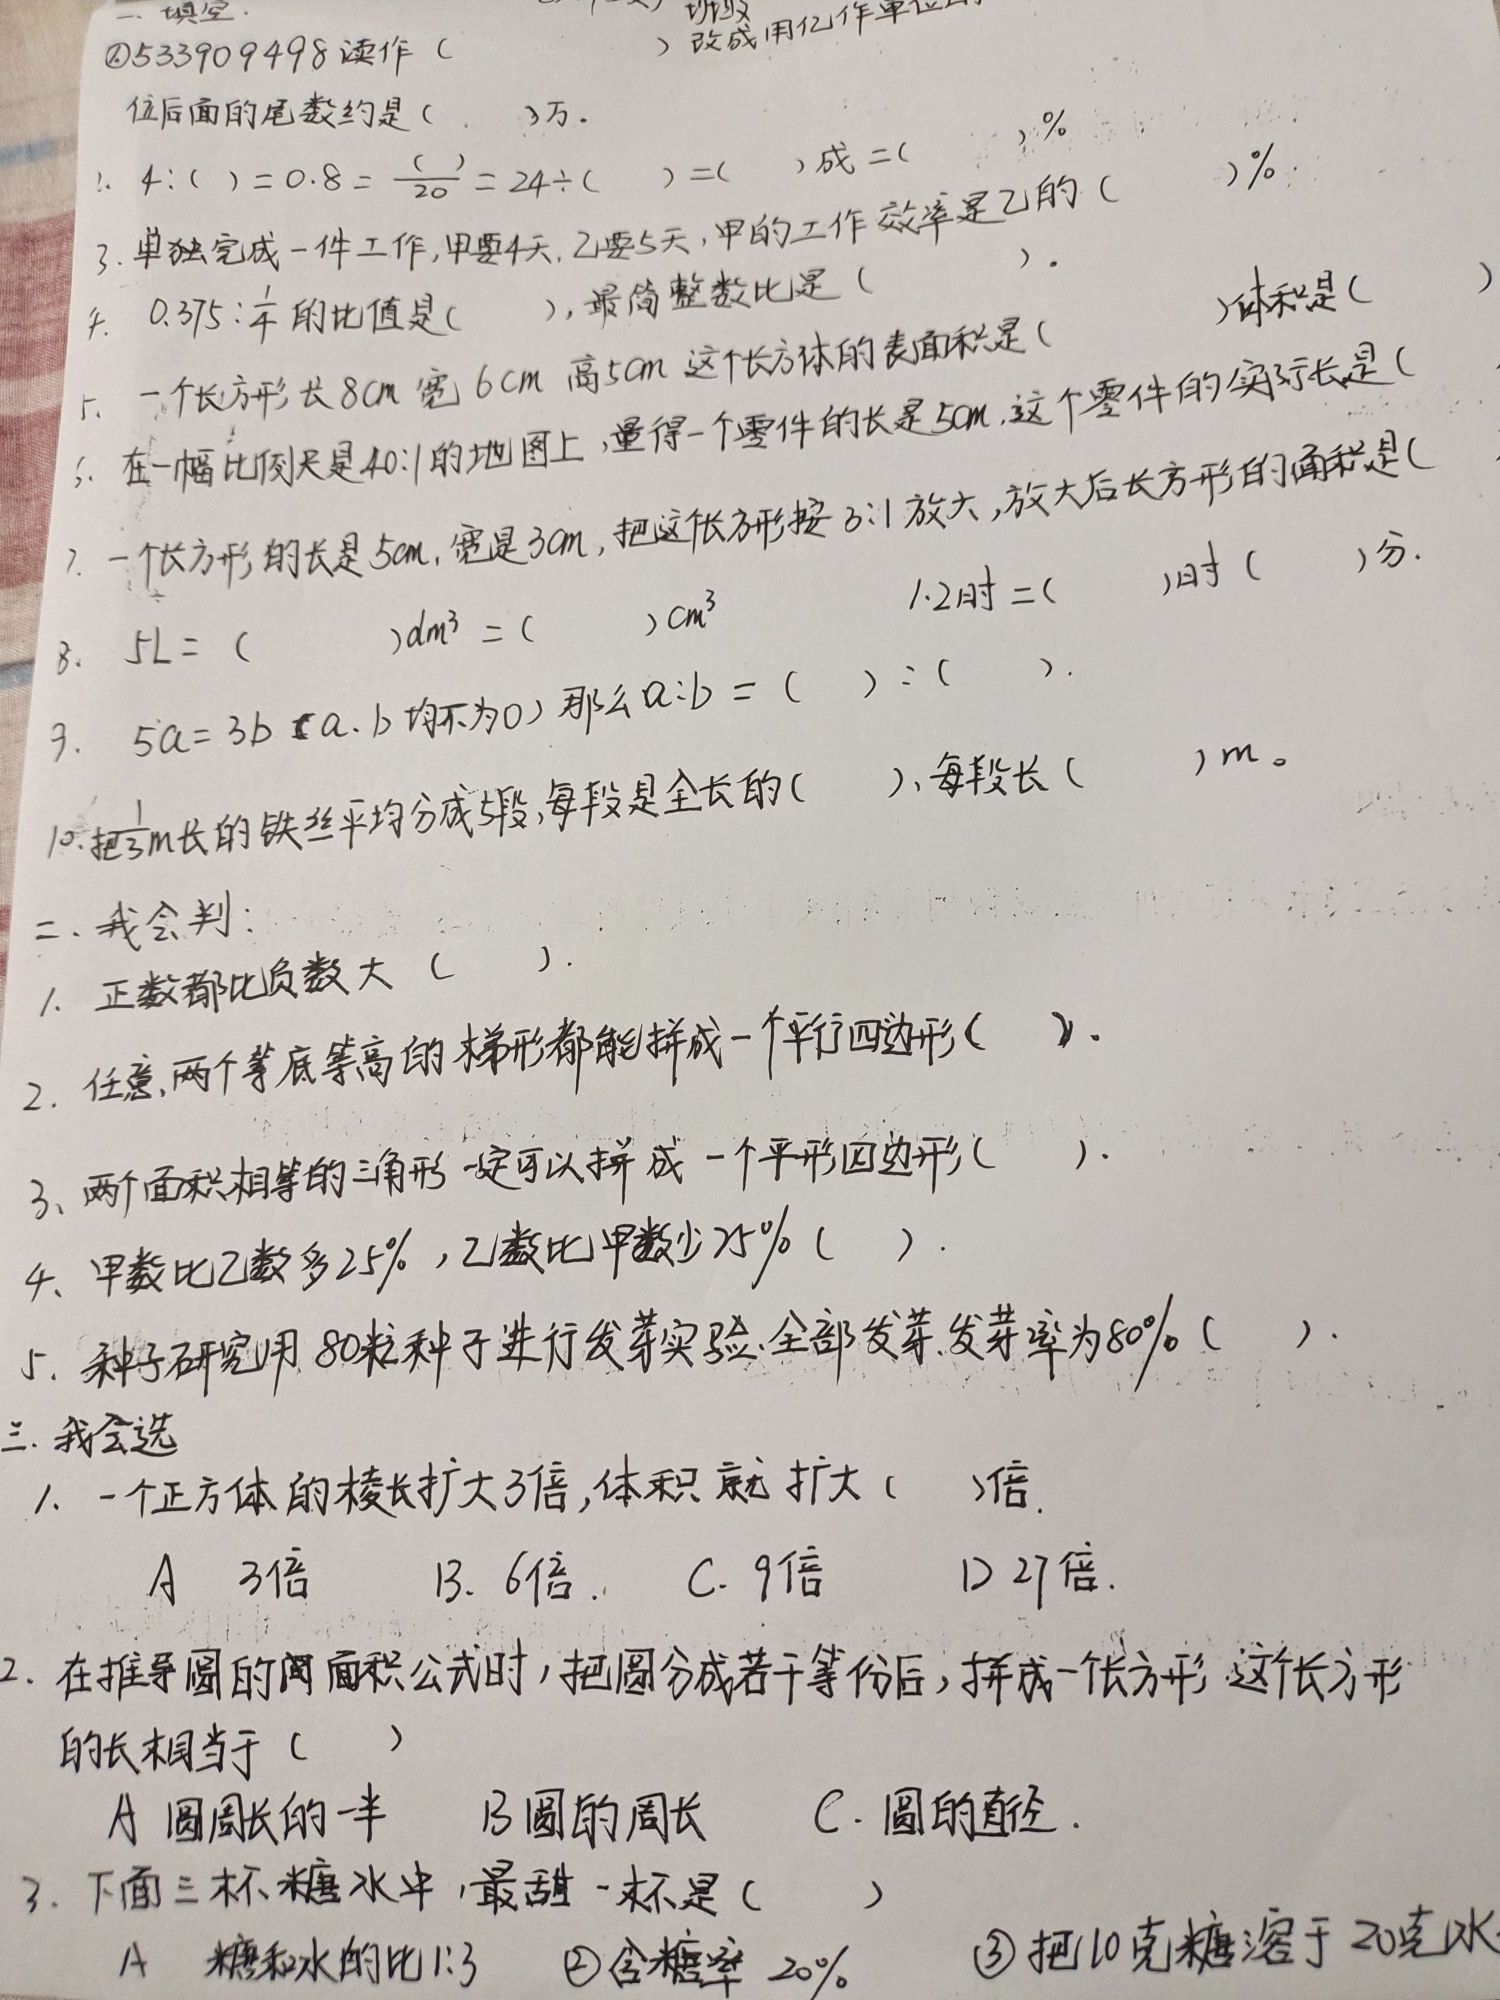 一、填空.
班级
①533909498读作（ ）改成用亿作单位的
位后面的尾数约是（ ）万.
2. 4:( )=0.8=( )/20=24÷( )=( )成=( )%
3. 单独完成一件工作,甲要4天,乙要5天,甲的工作效率是乙的（ ）%.
4. 0.375:1/4的比值是( ),最简整数比是（ ）.
5. 一个长方形长8cm宽6cm高5cm这个长方体的表面积是( )体积是( )
6. 在一幅比例尺是40:1的地图上,量得一个零件的长是5cm,这个零件的实际长是(
7. 一个长方形的长是5cm,宽是3cm,把这个长方形按3:1放大,放大后长方形的面积是(
8. 5L=( )dm³=( )cm³ 1.2时=( )时( )分.
9. 5a=3b(a.b均不为0)那么a:b=( ):( ).
10.把1/3m长的铁丝平均分成5段,每段是全长的( ),每段长( )m。
二、我会判:
1. 正数都比负数大( ).
2. 任意,两个等底等高的梯形都能拼成一个平行四边形( ).
3、两个面积相等的三角形一定可以拼成一个平形四边形( ).
4、甲数比乙数多25%,乙数比甲数少25%( ).
5. 种子研究用80粒种子进行发芽实验.全部发芽.发芽率为80%( ).
三.我会选
1. 一个正方体的棱长扩大3倍,体积就扩大( )倍.
A 3倍 B. 6倍. C. 9倍 D 27倍.
2. 在推导圆的面积公式时,把圆分成若干等份后,拼成一个长方形 这个长方形
的长相当于( )
A 圆周长的一半 B圆的周长 C. 圆的直径.
3. 下面三杯糖水中,最甜一杯是( )
A 糖和水的比1:3 ②含糖率20% ③把10克糖溶于20克水